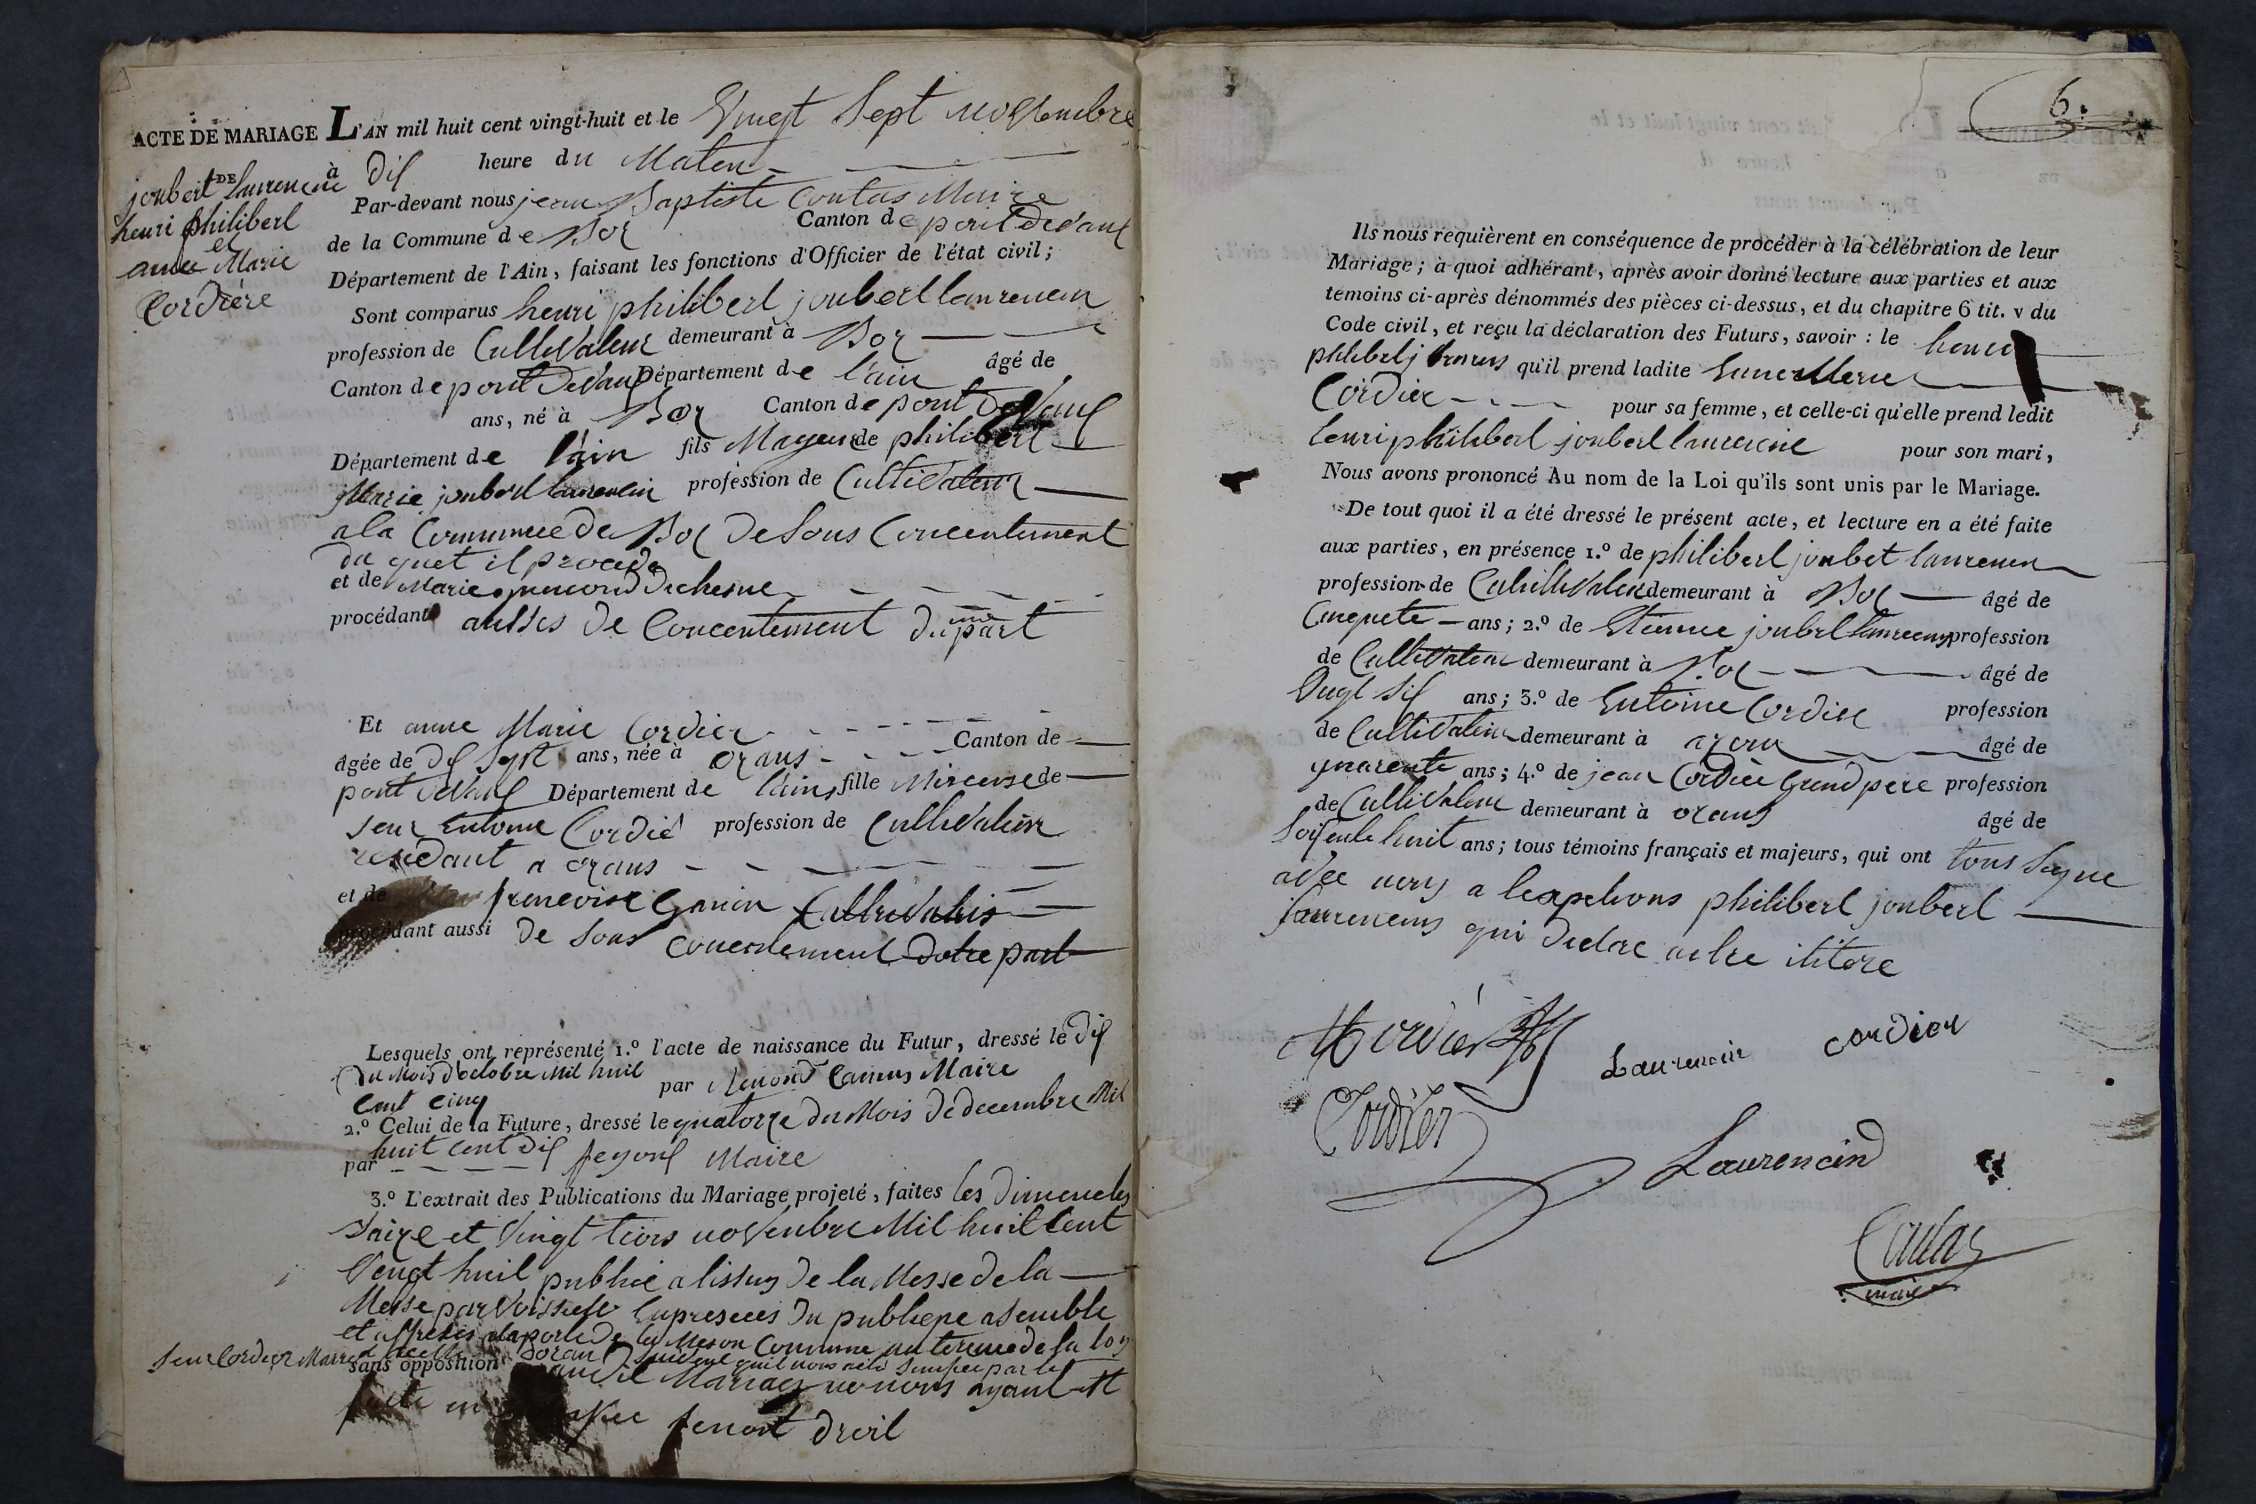 ACTE DE MARIAGE
DE
joubert laurencin
henri philibert
et
anne Marie
Cordière
L'AN mil huit cent vingt-huit et le Vingt Sept novembre
à dix heure du Maten
Par-devant nous jean Baptiste Coulas Maire
de la Commune de Boz Canton de pont Devaux
Département de l'Ain, faisant les fonctions d'Officier de l'état civil;
Sont comparus henri philibert joubert laurencin
profession de Cultivateur demeurant à Boz
Canton de pont Devaux Département de l'ain âgé de
ans, né à Boz Canton de pont Devaux
Département de l'ain fils Mageur de philibert
Marie joubert laurencin profession de Cultivateur
a la Commune de Boz De Sous Concentement
du quet il procede
et de Marie Duchesne
procédant aussis De Concentement Du part
Et anne Marie Cordier
âgée de dix sept ans, née à ozans Canton de
pont devaux Département de l'ain, fille Mineure de
Seur entoine Cordié profession de Cultivateur
resedant a ozans
et de francoise Gonin Cultivatris
procédant aussi de sous Concentement dotre part
Lesquels ont représenté 1.º l'acte de naissance du Futur, dressé le dix
du Mois d'octobre Mil huit
Cent cinq par Camus Maire
2.º Celui de la Future, dressé le quatorze du Mois de decembre Mil
huit Cent dix
par feyoux Maire
3.º L'extrait des Publications du Mariage projeté, faites les dimenches
Saize et Vingt trois novenbre Mil huit Cent
Vengt huit publié a lissus de la Messe de la
Messe parvoissiele enpresences du publieque asemble
et affichés a laporte de la Meson Commune au terme de la loy
Seur Cordier Maire
sans opposition
Mariage nonous ayant et
fenont droit
6.
Ils nous requièrent en conséquence de procéder à la célébration de leur
Mariage; à quoi adhérant, après avoir donné lecture aux parties et aux
temoins ci-après dénommés des pièces ci-dessus, et du chapitre 6 tit. v du
Code civil, et reçu la déclaration des Futurs, savoir : le henri
philibert qu'il prend ladite enne Merie
Cordier pour sa femme, et celle-ci qu'elle prend ledit
henri philibert joubert laurencin pour son mari,
Nous avons prononcé Au nom de la Loi qu'ils sont unis par le Mariage.
De tout quoi il a été dressé le présent acte, et lecture en a été faite
aux parties, en présence 1.º de philibert joubet laurencin
profession de Culultivateur demeurant à Boz âgé de
Cinquete ans; 2.º de Etienne joubert laurencin profession
de Cultivateur demeurant à Boz âgé de
Vingt six ans; 3.º de entoine Cordier profession
de Cultivateur demeurant à ozans âgé de
quarente ans; 4.º de jean Cordier Grand pere profession
de Cultivateur demeurant à ozans âgé de
Soixente huit ans; tous témoins français et majeurs, qui ont tous Signe
avec nous a lexpetions philibert joubert
laurencins qui declare netre ititere
Cordier
Laurencin
cordier
Cordier
Laurencin
Coulas
maire